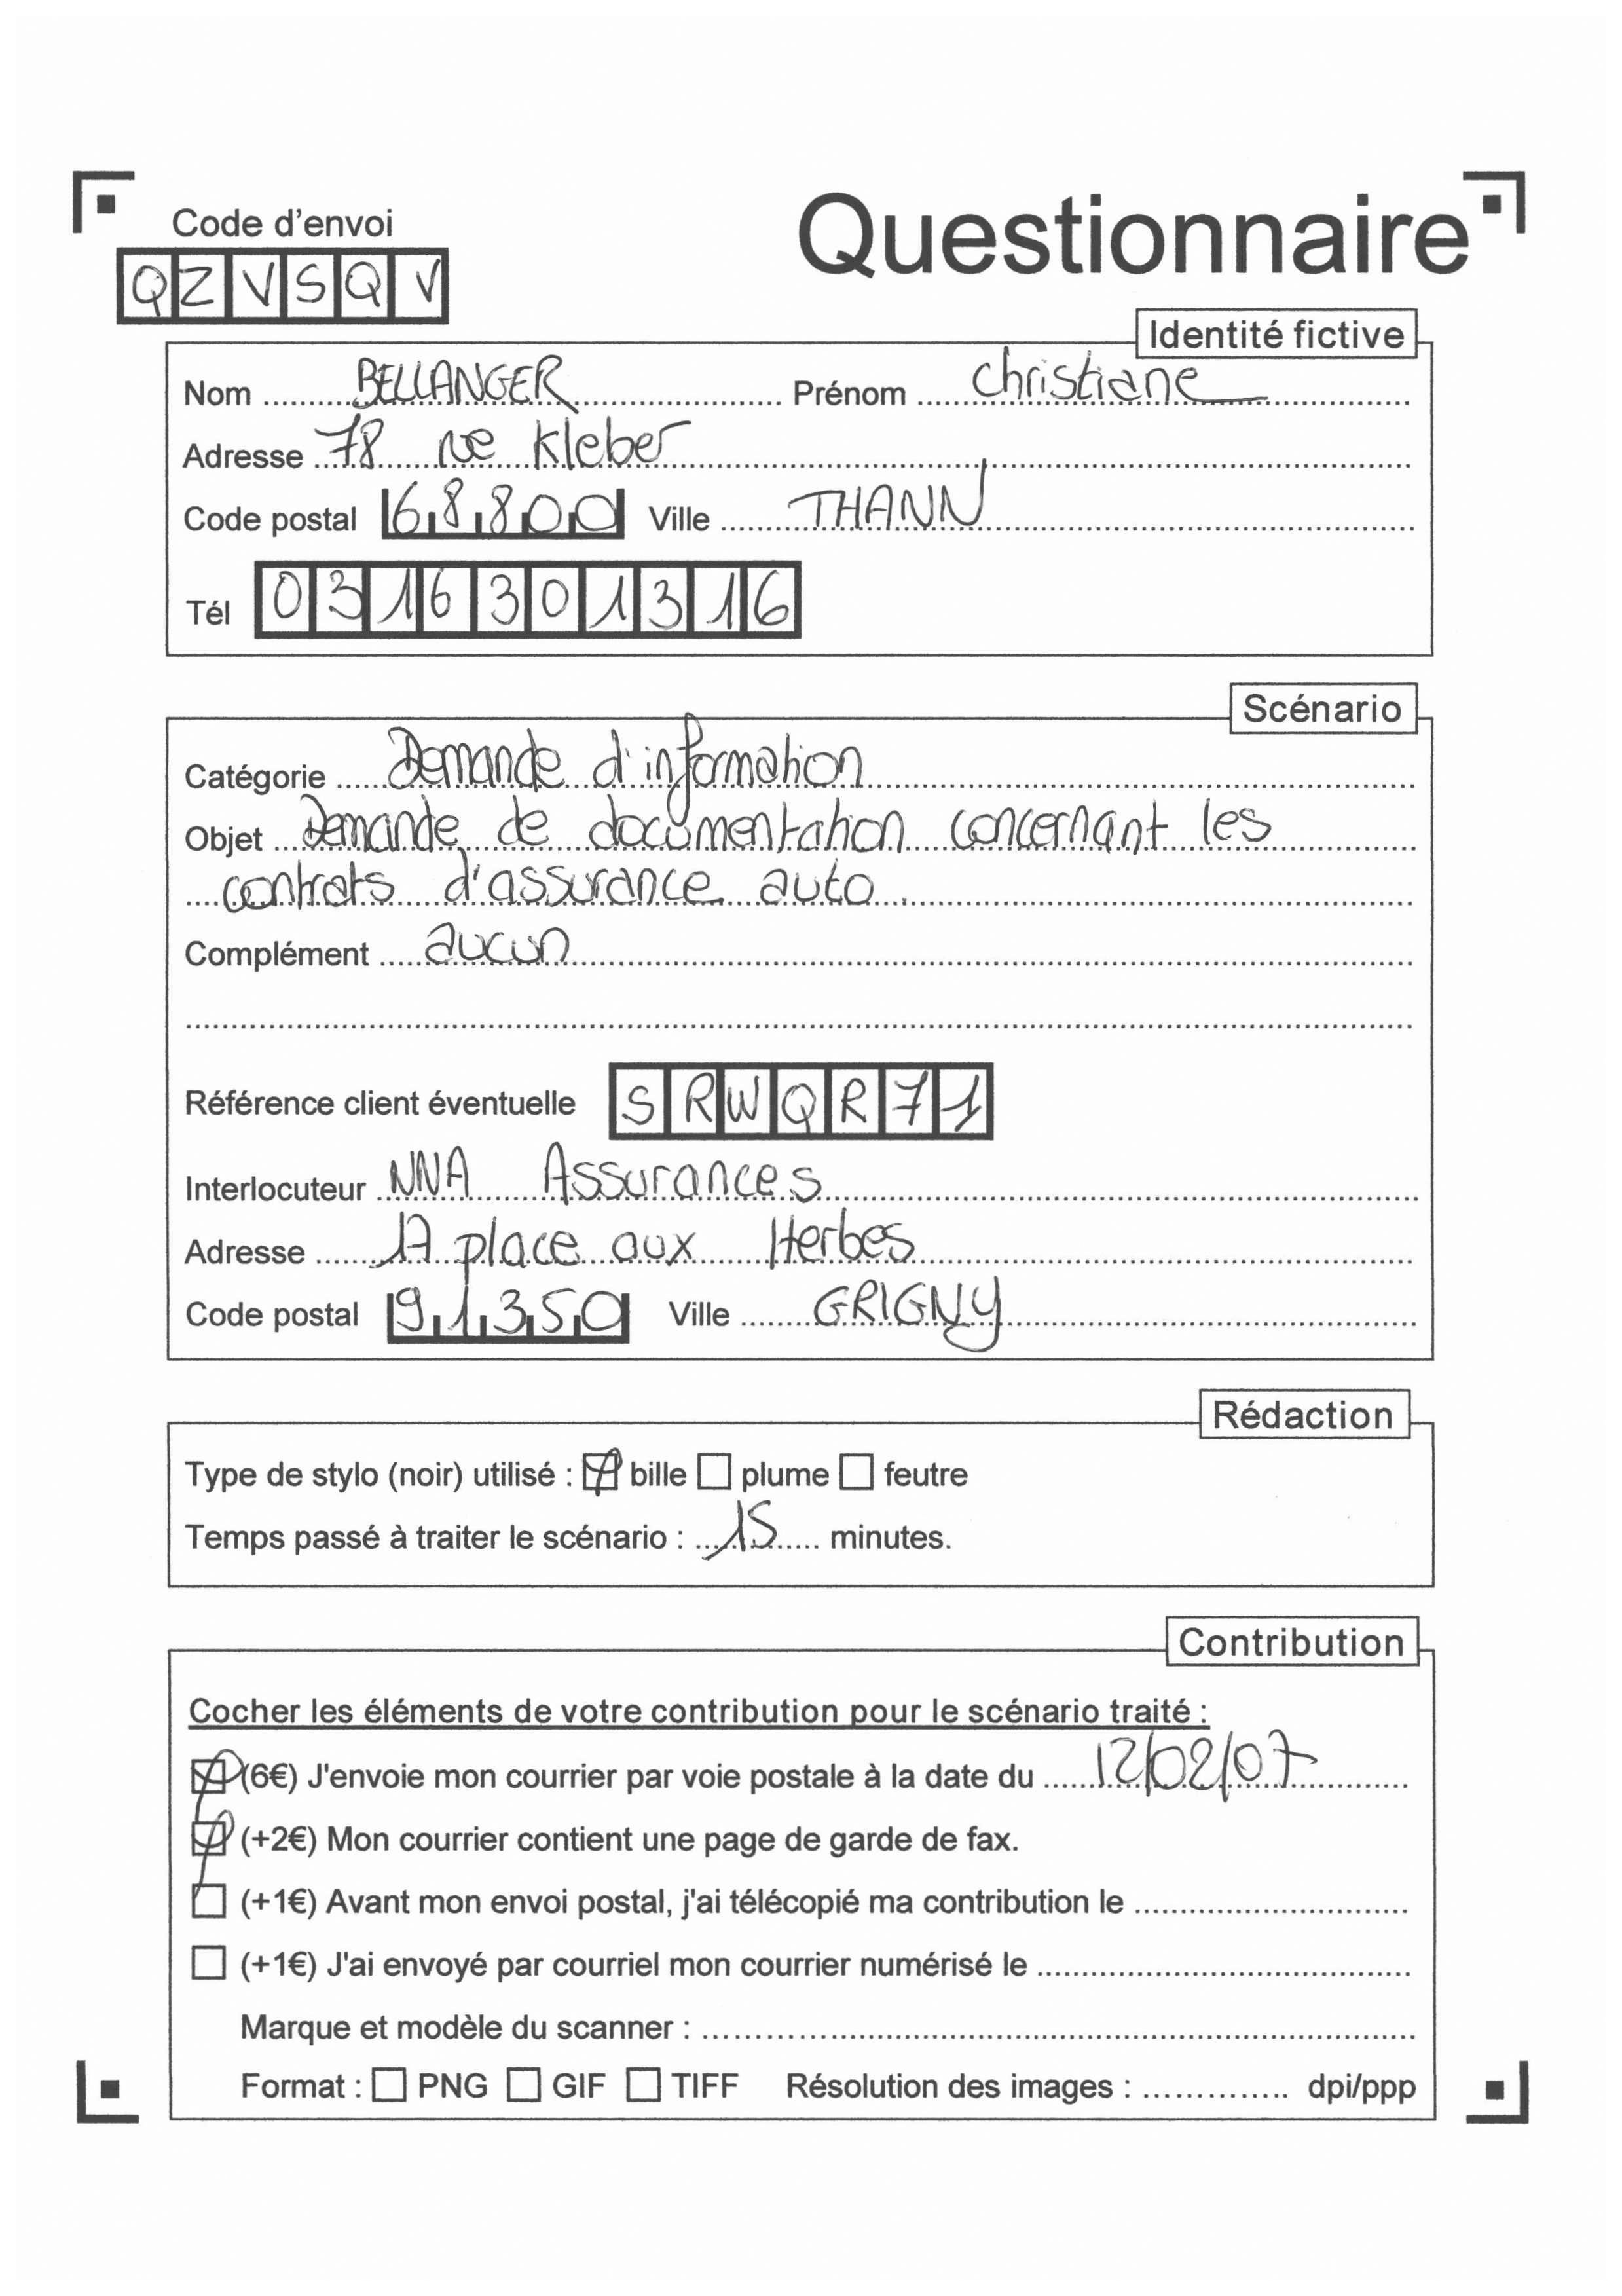 Code d'envoi
Questionnaire
QZVSQV
Identité fictive
Nom BELLANGER Prénom Christiane
Adresse 78 rue Kleber
Code postal 68800 Ville THANN
Tél 0316301316
Scénario
Catégorie Demande d'information
Objet Demande de documentation concernant les
contrats d'assurance auto.
Complément aucun
Référence client éventuelle SRWQR71
Interlocuteur NNA Assurances
Adresse 17 place aux Herbes
Code postal 91350 Ville GRIGNY
Rédaction
Type de stylo (noir) utilisé : bille plume feutre
Temps passé à traiter le scénario : 15 minutes.
Contribution
Cocher les éléments de votre contribution pour le scénario traité :
(6€) J'envoie mon courrier par voie postale à la date du 12/02/07
(+2€) Mon courrier contient une page de garde de fax.
(+1€) Avant mon envoi postal, j'ai télécopié ma contribution le
(+1€) J'ai envoyé par courriel mon courrier numérisé le
Marque et modèle du scanner :
Format : PNG GIF TIFF Résolution des images : dpi/ppp